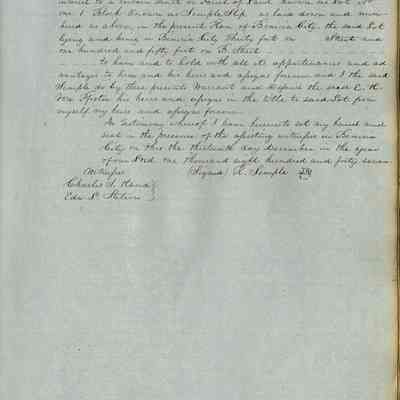 one 1 Block known as Semple Slip, as laid down and num-
bered as above, in the present Plan of Benicia City, the said Lot
lying and being in Benicia City thirty feet on Street and
one hundred and fifty feet on B. Street
to have and to hold with all its appurtenances and ad
vantages to him and his heirs and assigns forever and I the said
Semple do by these presents Warrant and defend the said E. H.
Von Pfister his heirs and assigns in the title to said Lot from
myself my heirs and assigns forever.
In testimony whereof I have hereunto set my hand and
seal in the presence of the attesting witnesses in Benicia
City on this the thirteenth day December in the year
of our Lord one thousand eight hundred and forty seven
Witnesses (Signed) R. Semple
Charles S. Hand
Edw.